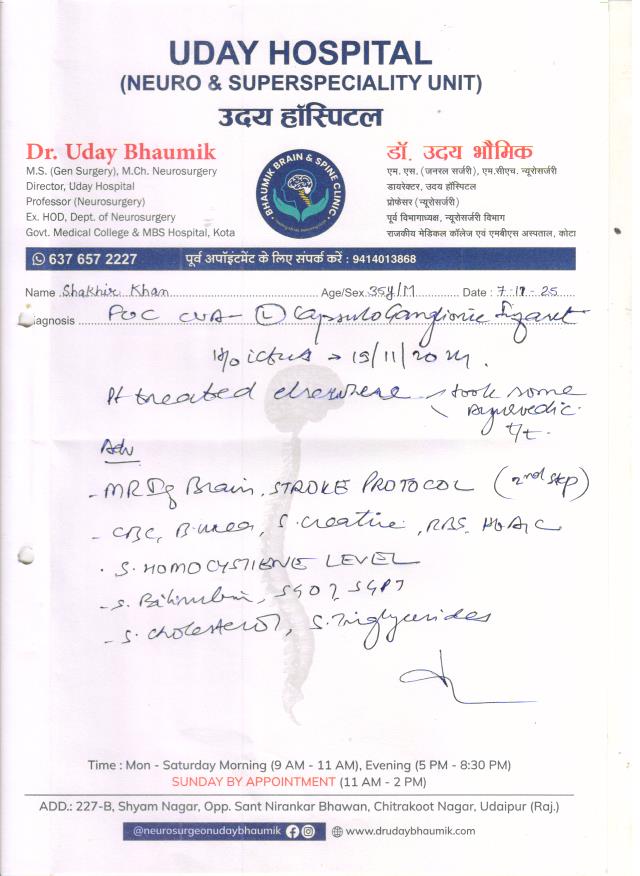 UDAY HOSPITAL
(NEURO & SUPERSPECIALITY UNIT)
उदय हॉस्पिटल
Dr. Uday Bhaumik
M.S. (Gen Surgery), M.Ch. Neurosurgery
Director, Uday Hospital
Professor (Neurosurgery)
Ex. HOD, Dept. of Neurosurgery
Govt. Medical College & MBS Hospital, Kota
BHAUMIK BRAIN & SPINE CLINIC
डॉ. उदय भौमिक
एम. एस. (जनरल सर्जरी), एम.सीएच. न्यूरोसर्जरी
डायरेक्टर, उदय हॉस्पिटल
प्रोफेसर (न्यूरोसर्जरी)
पूर्व विभागाध्यक्ष, न्यूरोसर्जरी विभाग
राजकीय मेडिकल कॉलेज एवं एमबीएस अस्पताल, कोटा
637 657 2227 पूर्व अपॉइंटमेंट के लिए संपर्क करें : 9414013868
Name Shakhir Khan Age/Sex 35y/M Date :
iagnosis CVA (L) Capsulo Ganglionic
H/o ictus → 19/11/2024.
Pt treated elsewhere took some
Ayurvedic
t/t.
Adv
- MRI Brain, STROKE PROTOCOL (2nd step)
- CBC, B. urea, S. creatine, RBS, HbA1C
. S. HOMOCYSTIENE LEVEL
- S. Bilirubin, SGOT, SGPT
- S. Cholesterol, S. Triglycerides
Time : Mon - Saturday Morning (9 AM - 11 AM), Evening (5 PM - 8:30 PM)
SUNDAY BY APPOINTMENT (11 AM - 2 PM)
ADD.: 227-B, Shyam Nagar, Opp. Sant Nirankar Bhawan, Chitrakoot Nagar, Udaipur (Raj.)
@neurosurgeonudaybhaumik www.drudaybhaumik.com